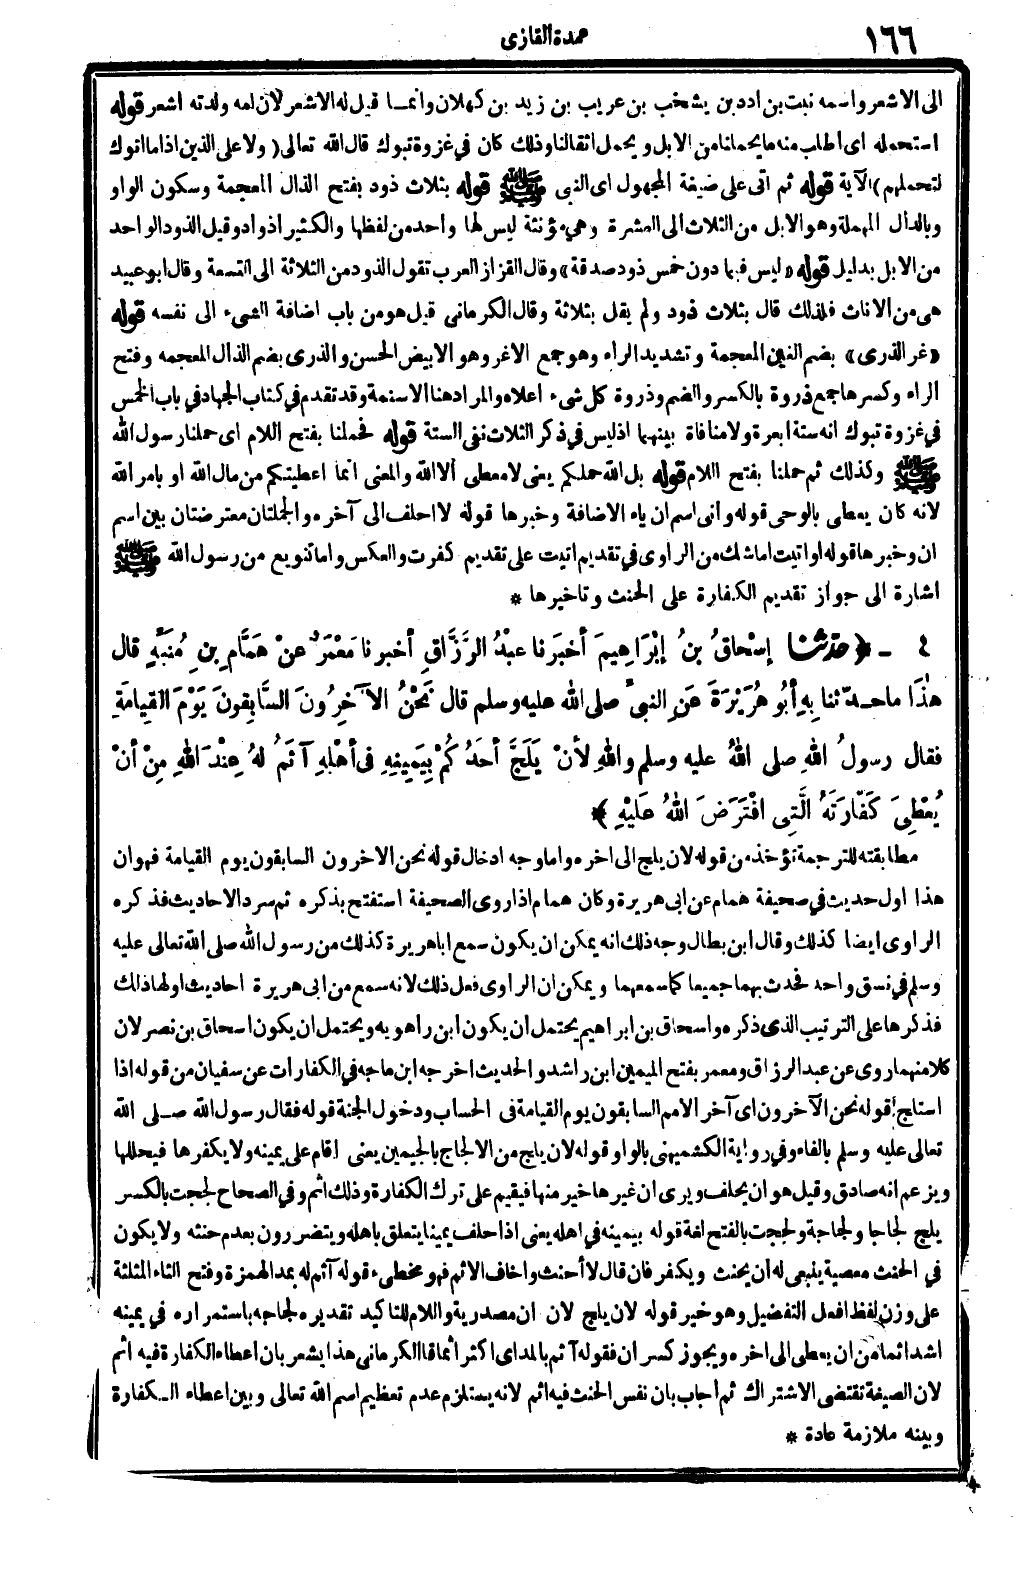 ١٦٦
عمدة القارى
الى الاشعر واسمه نبت بن ادد بن يشخب بن عريب بن زيد بن كهلان وانمـا قيل له الاشعر لان امه ولدته اشعر قوله
استحمله اى اطلب منه ما يحملنا من الابل ويحمل اثقالنا وذلك كان في غزوة تبوك قال الله تعالى ( ولا على الذين اذا ما اتوك
لتحملهم ) الآية قوله ثم اتى على صيغة المجهول اى النبى ﷺ قوله بثلاث ذود بفتح الذال المعجمة وسكون الواو
وبالدال المهملة وهو الابل من الثلاث الى العشرة وهي مؤنثة ليس لها واحد من لفظها والكثير اذواد وقيل الذود الواحد
من الابل بدليل قوله «ليس فيما دون خمس ذود صدقة» وقال القزاز العرب تقول الذود من الثلاثة الى التسعة وقال ابو عبيد
هى من الاناث فلذلك قال بثلاث ذود ولم يقل بثلاثة وقال الكرمانى قيل هو من باب اضافة الشىء الى نفسه قوله
«غر الذرى» بضم الغين المعجمة وتشديد الراء وهو جمع الاغر وهو الابيض الحسن والذرى بضم الذال المعجمه وفتح
الراء وكسرها جمع ذروة بالكسر والضم وذروة كل شىء اعلاه والمراد هنا الاسنمة وقد تقدم في كتاب الجهاد في باب الخمس
في غزوة تبوك انه ستة ابعرة ولا منافاة بينهما اذ ليس في ذكر الثلاث نفى الستة قوله فحملنا بفتح اللام اى حملنا رسول الله
ﷺ وكذلك ثم حملنا بفتح اللام قوله بل الله حملكم يعنى لا معطى الا الله والمعنى انما اعطيتكم من مال الله او بامر الله
لانه كان يعطى بالوحى قوله وانى اسم ان ياء الاضافة وخبرها قوله لا احلف الى آخره والجملتان معترضتان بين اسم
ان وخبرها قوله او اتيت اما شك من الراوى في تقديم اتيت على تقديم كفرت والعكس واما تنويع من رسول الله ﷺ
اشارة الى جواز تقديم الكفارة على الحنث وتاخيرها *
٤ - ﴿ حدثنا إسْحاقُ بنُ إبْرَاهِيمَ أخبَرَنا عبْدُ الرَّزَّاقِ أخبرنا مَعْمَرٌ عنْ هَمَّامِ بنِ مُنَبِّهٍ قال
هٰذَا ماحـدّثنا بِهِ أبُو هُرَيْرَةَ عَنِ النبيِّ صلى الله عليه وسلم قال نَحْنُ الآخِرُونَ السَّابِقونَ يَوْمَ القِيامَةِ
فقال رسولُ اللهِ صلى اللهُ عليه وسلم واللهِ لأنْ يَلَجَّ أحَدُكُمْ بِيَمِينِهِ فى أهْلِهِ آثَمُ لهُ عِنْدَ اللهِ مِنْ أنْ
يُعْطِيَ كَفّارَتَهُ الَّتِى افْتَرَضَ اللهُ عَلَيْهِ ﴾
مطابقته للترجمة تؤخذ من قوله لان يلج الى اخره واما وجه ادخال قوله نحن الاخرون السابقون يوم القيامة فهو ان
هذا اول حديث في صحيفة همام عن ابى هريرة وكان همام اذا روى الصحيفة استفتح بذكره ثم سرد الاحاديث فذكره
الراوى ايضا كذلك وقال ابن بطال وجه ذلك انه يمكن ان يكون سمع ابا هريرة كذلك من رسول الله صلى الله تعالى عليه
وسلم في نسق واحد فحدث بهما جميعا كما سمعهما ويمكن ان الراوى فعل ذلك لانه سمع من ابى هريرة احاديث اولها ذلك
فذكرها على الترتيب الذى ذكره واسحاق بن ابراهيم يحتمل ان يكون ابن راهويه ويحتمل ان يكون اسحاق بن نصر لان
كلا منهما روى عن عبد الرزاق ومعمر بفتح الميمين ابن راشد والحديث اخرجه ابن ماجه في الكفارات عن سفيان من قوله اذا
استلج قوله نحن الآخرون اى آخر الامم السابقون يوم القيامة فى الحساب ودخول الجنة قوله فقال رسول الله صـلى الله
تعالى عليه وسلم بالفاء وفي رواية الكشميهنى بالواو قوله لان يلج من الالجاج بالجيمين يعنى اقام على يمينه ولا يكفرها فيحللها
ويزعم انه صادق وقيل هو ان يحلف ويرى ان غيرها خير منها فيقيم على ترك الكفارة وذلك اثم وفي الصحاح لججت بالكسر
يلج لجاجا ولجاجة ولججت بالفتح لغة قوله بيمينه في اهله يعنى اذا حلف يمينا يتعلق باهله ويتضررون بعدم حنثه ولا يكون
في الحنث معصية ينبغى له أن يحنث ويكفر فان قال لا أحنث واخاف الاثم فهو مخطىء قوله آثم له بمد الهمزة وفتح الثاء المثلثة
على وزن لفظ افعل التفضيل وهو خبر قوله لان يلج لان ان مصدرية واللام للتاكيد تقديره لجاجه باستمراره في يمينه
اشد اثما من ان يعطى الى اخره ويجوز كسر ان فقوله آثم بالمد اى اكثر اثما قال الكرمانى هذا يشعر بان اعطاء الكفارة فيه اثم
لان الصيغة تقتضى الاشتراك ثم اجاب بان نفس الحنث فيه اثم لانه يستلزم عدم تعظيم اسم الله تعالى وبين اعطاء الـكفارة
وبينه ملازمة عادة *